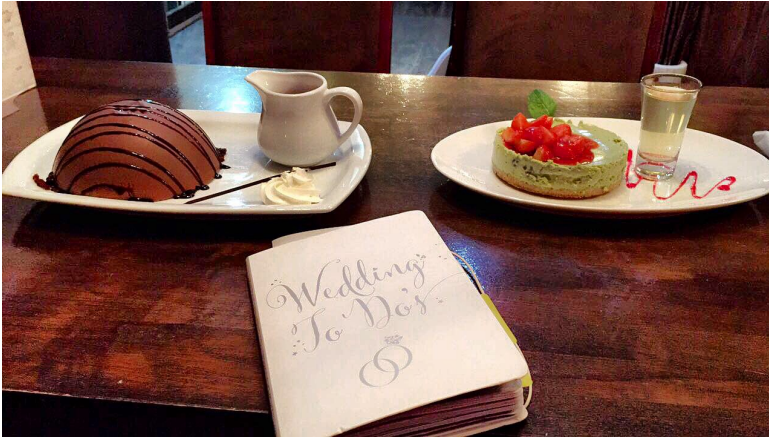 Wedding
To Do's